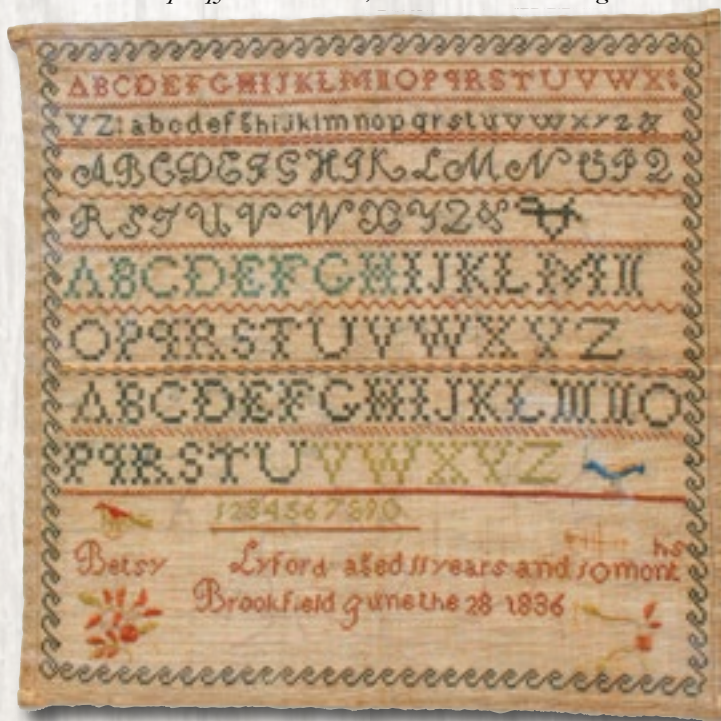 ABCDEFGHIJKLMNOPqRSTUVWX&
YZ&abcdefghijklmnopqrstuvwxyz&
ABCDEFGHIKLMNOPQ
RSTUVWXYZ&
ABCDEFGHIJKLMN
OPqRSTUVWXYZ
ABCDEFGHIJKLMNO
PqRSTUVWXYZ
1234567890
hs
Betsy Lyford aged 11 years and 10 mont
Brookfield June the 28 1836